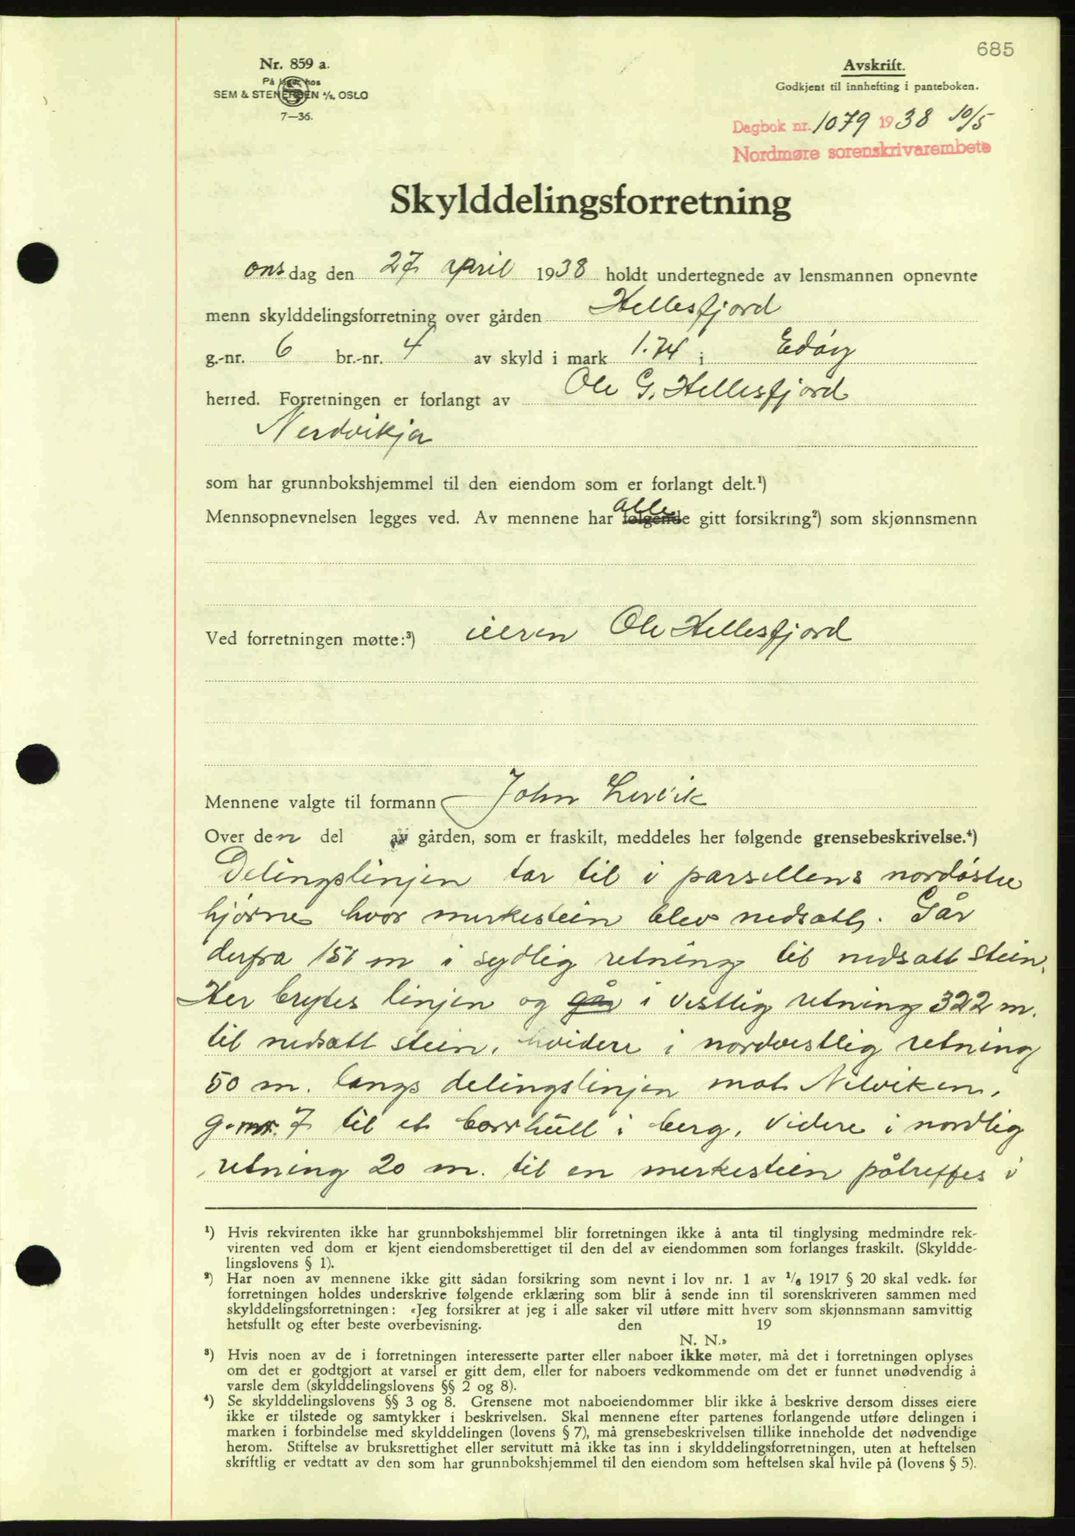 685
Nr. 859 a.
På lager hos
SEM & STENERSEN A/S, OSLO
7—36.
Avskrift.
Godkjent til innhefting i panteboken.
Dagbok nr. 1079 1938 10/5
Nordmøre sorenskrivarembete
Skylddelingsforretning
onsdag den 27 april 1938 holdt undertegnede av lensmannen opnevnte
menn skylddelingsforretning over gården Hellesfjord
g.-nr. 6 br.-nr. 4 av skyld i mark 1.74 i Edøy
herred. Forretningen er forlangt av Ole G. Hellesfjord
Nerdvikja
som har grunnbokshjemmel til den eiendom som er forlangt delt.¹)
Mennsopnevnelsen legges ved. Av mennene har følgende alle gitt forsikring²) som skjønnsmenn
Ved forretningen møtte:³) eieren Ole Hellesfjord
Mennene valgte til formann John Lervik
Over den del av gården, som er fraskilt, meddeles her følgende grensebeskrivelse.⁴)
Delingslinjen tar til i parsellens nordøstre
hjørne hvor merkestein blev nedsatt. Går
derfra 151 m i sydlig retning til nedsatt stein.
Her brytes linjen og går i vestlig retning 322 m.
til nedsatt stein, videre i nordvestlig retning
50 m. langs delingslinjen mot Nelviken,
g.nr. 7 til et borrhull i berg, videre i nordlig
retning 20 m. til en merkestein påtreffes i
¹) Hvis rekvirenten ikke har grunnbokshjemmel blir forretningen ikke å anta til tinglysing medmindre rek-
virenten ved dom er kjent eiendomsberettiget til den del av eiendommen som forlanges fraskilt. (Skyldde-
lingslovens § 1).
²) Har noen av mennene ikke gitt sådan forsikring som nevnt i lov nr. 1 av 1/6 1917 § 20 skal vedk. før
forretningen holdes underskrive følgende erklæring som blir å sende inn til sorenskriveren sammen med
skylddelingsforretningen: «Jeg forsikrer at jeg i alle saker vil utføre mitt hverv som skjønnsmann samvittig
hetsfullt og efter beste overbevisning. den 19
N. N.»
³) Hvis noen av de i forretningen interesserte parter eller naboer ikke møter, må det i forretningen oplyses
om det er godtgjort at varsel er gitt dem, eller for naboers vedkommende om det er funnet unødvendig å
varsle dem (skylddelingslovens §§ 2 og 8).
⁴) Se skylddelingslovens §§ 3 og 8. Grensene mot naboeiendommer blir ikke å beskrive dersom disses eiere
ikke er tilstede og samtykker i beskrivelsen. Skal mennene efter partenes forlangende utføre delingen i
marken i forbindelse med skylddelingen (lovens § 7), må grensebeskrivelsen tillike inneholde det nødvendige
herom. Stiftelse av bruksrettighet eller servitutt må ikke tas inn i skylddelingsforretningen, uten at heftelsen
skriftlig er vedtatt av den som har grunnbokshjemmel til den eiendom som heftelsen skal hvile på (lovens § 5).